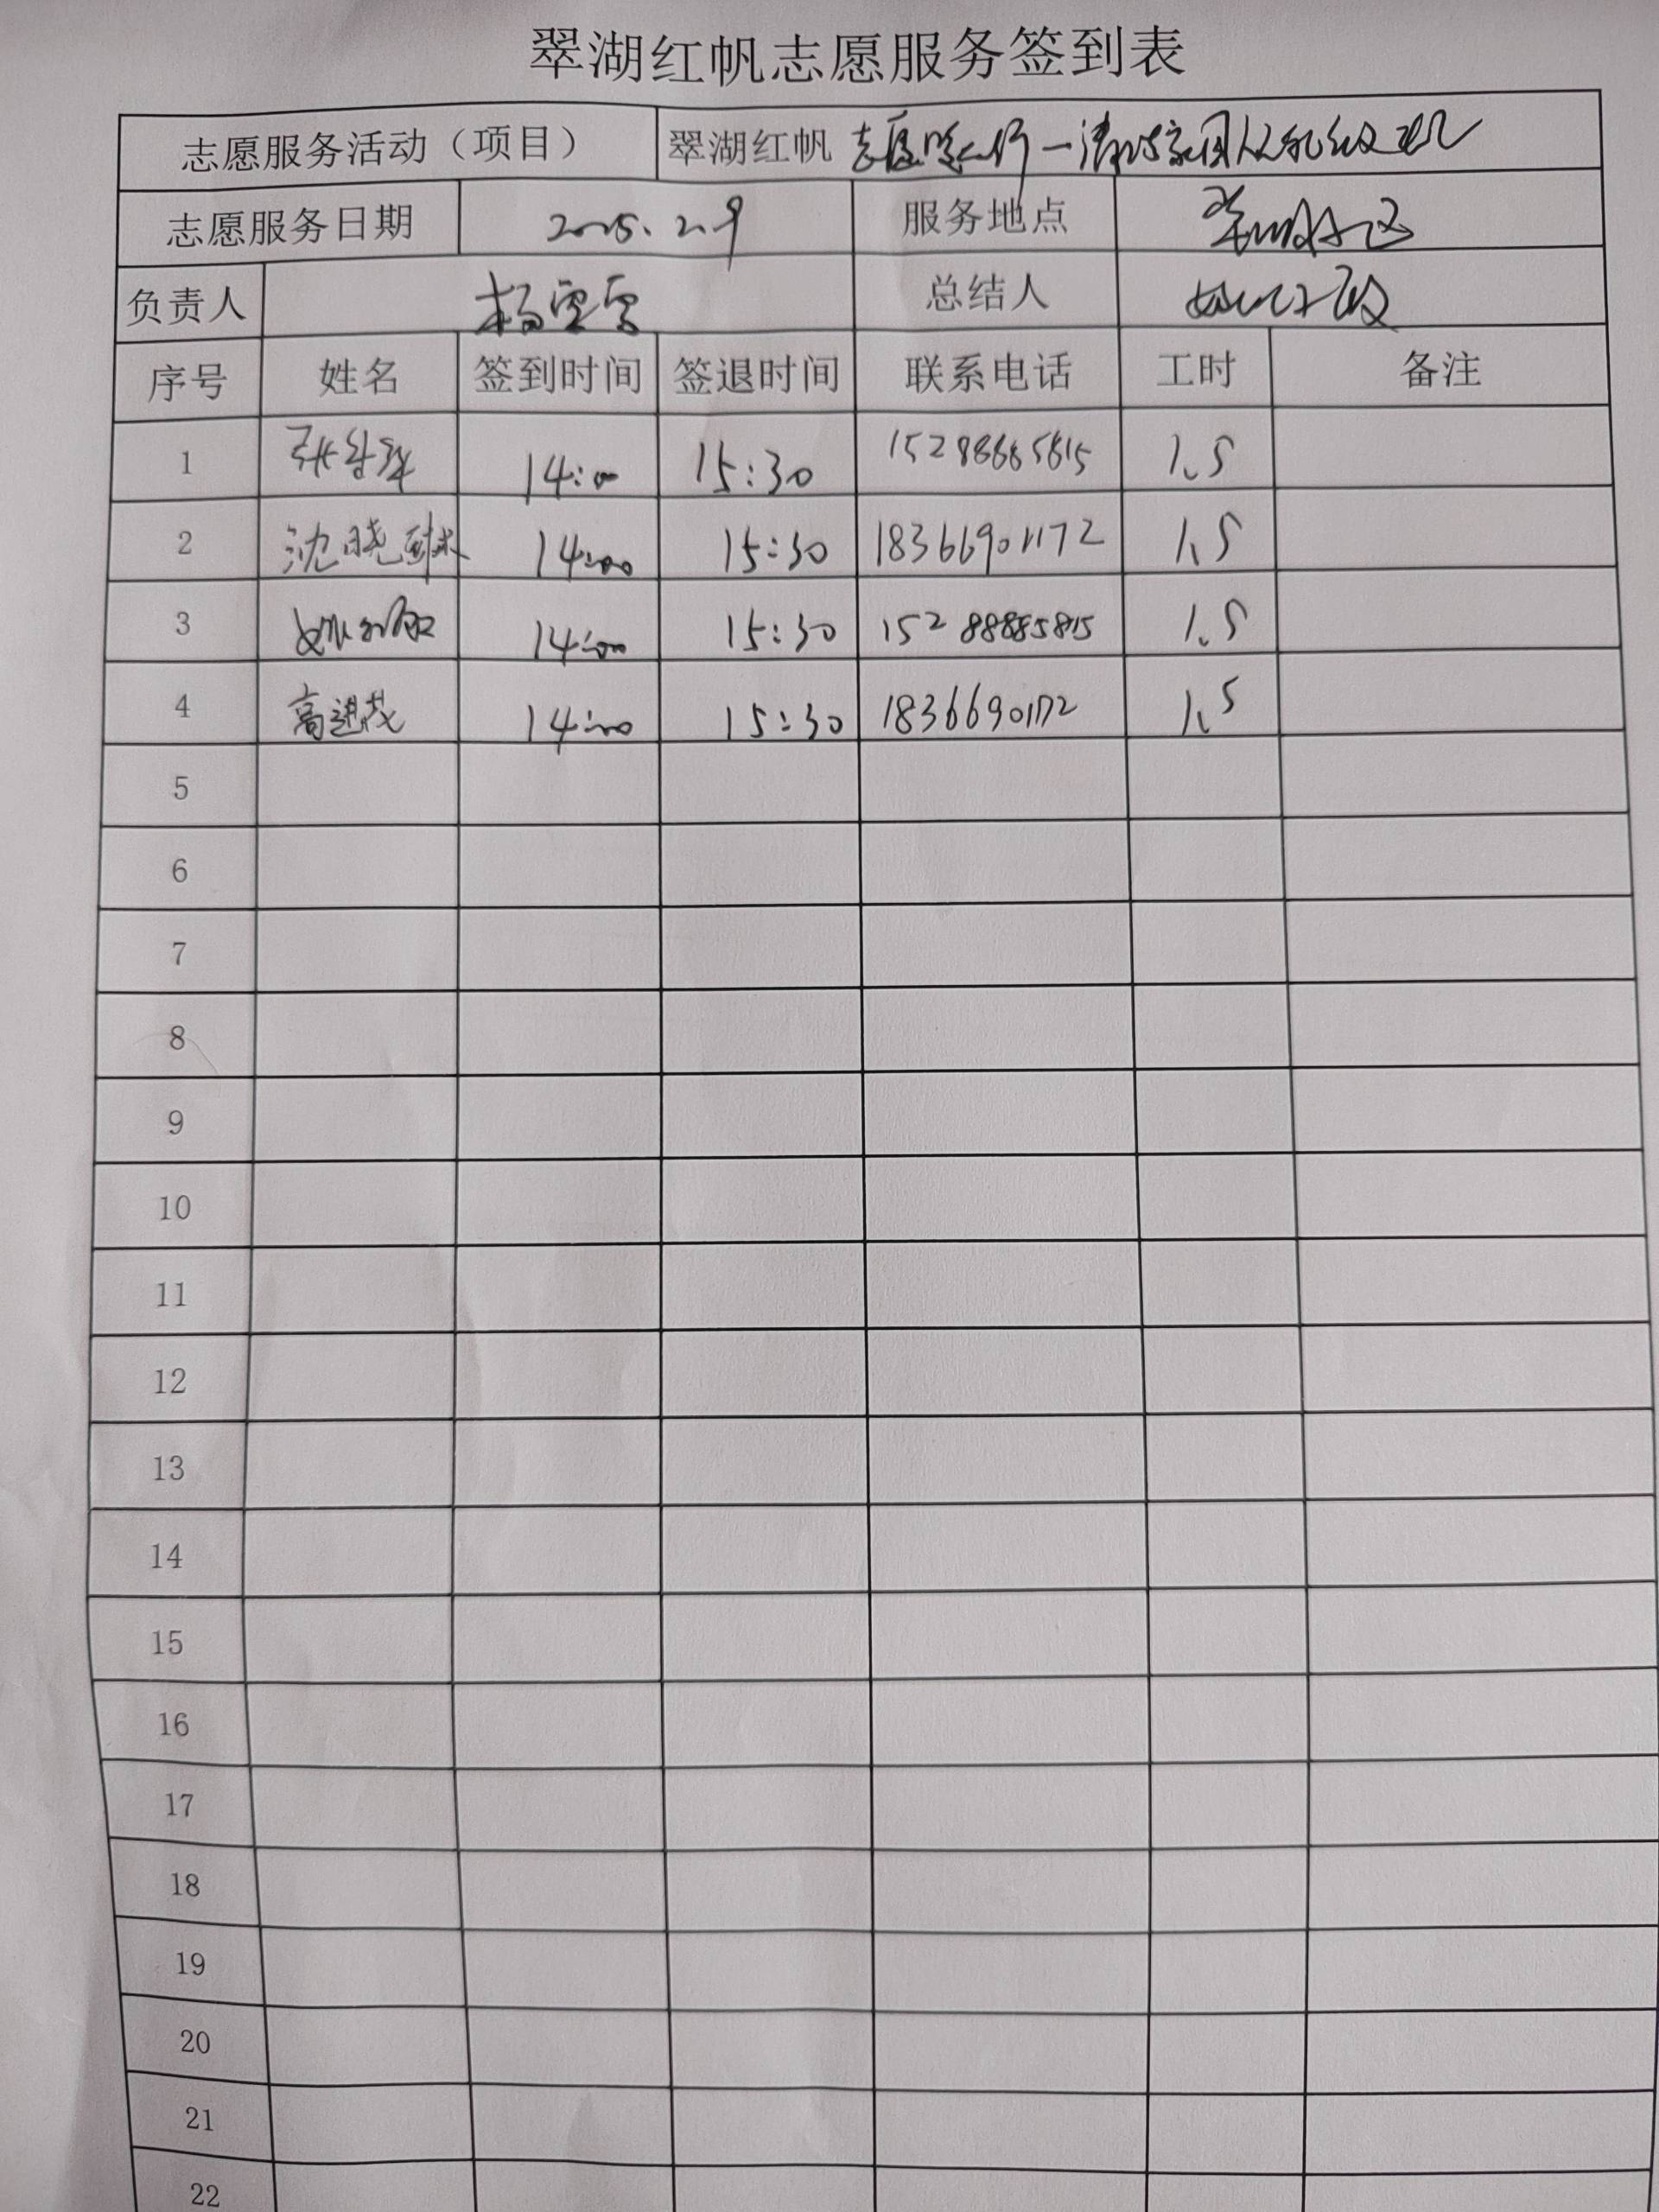 翠湖红帆志愿服务签到表
志愿服务活动（项目） 翠湖红帆 志愿
志愿服务日期 2025.2.9 服务地点 翠湖社区
负责人 杨雪雪 总结人
序号 姓名 签到时间 签退时间 联系电话 工时 备注
1 14:00 15:30 1.5
2 沈晓 14:00 15:30 1.5
3 14:00 15:30 15288885815 1.5
4 高进茂 14:00 15:30 18366901172 1.5
5
6
7
8
9
10
11
12
13
14
15
16
17
18
19
20
21
22